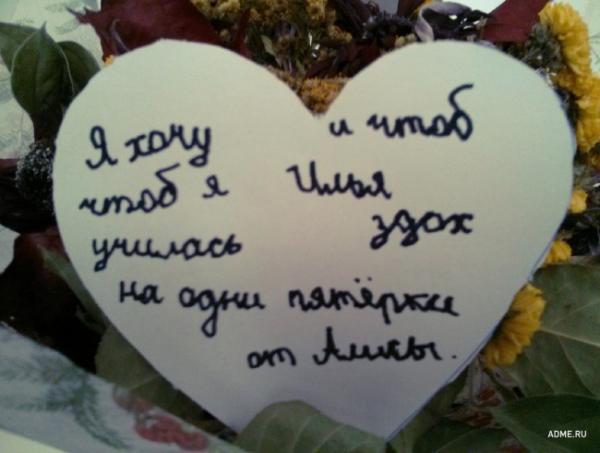 Я хочу
чтоб я
училась
на одни пятёрки
и чтоб
Илья
здох
от Алисы.
ADME.RU